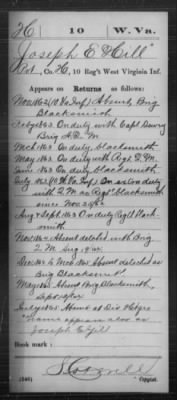 H 10 W. Va.
Joseph E Hill
Pvt., Co. H, 10 Reg't West Virginia Inf.
Appears on Returns as follows:
Nov. 1862 (10 Va Inf) Absent, Brig
Blacksmith
1863 On duty with Capt
Brig A. Q. M.
Mch 1863 On duty, blacksmith
May 1863 On duty with Regt Q. M.
June 1863 On duty blacksmith
July 1863 On extra duty
with Q. M. as Regt blacksmith
since Nov 2/62
Aug & Sept 1863 On duty Regt Black-
smith
Nov 1864 Absent detached with Brig
Q. M. Aug 19/64.
Dec 1864 to Mar 1865 Absent detached as
Brig Blacksmith
May 1865 Absent Brig Blacksmith,
Sept 19/64
1865 Absent at Div Hdqrs
Name appears also as
Joseph E Gill
Book mark:
(546) Copyist.